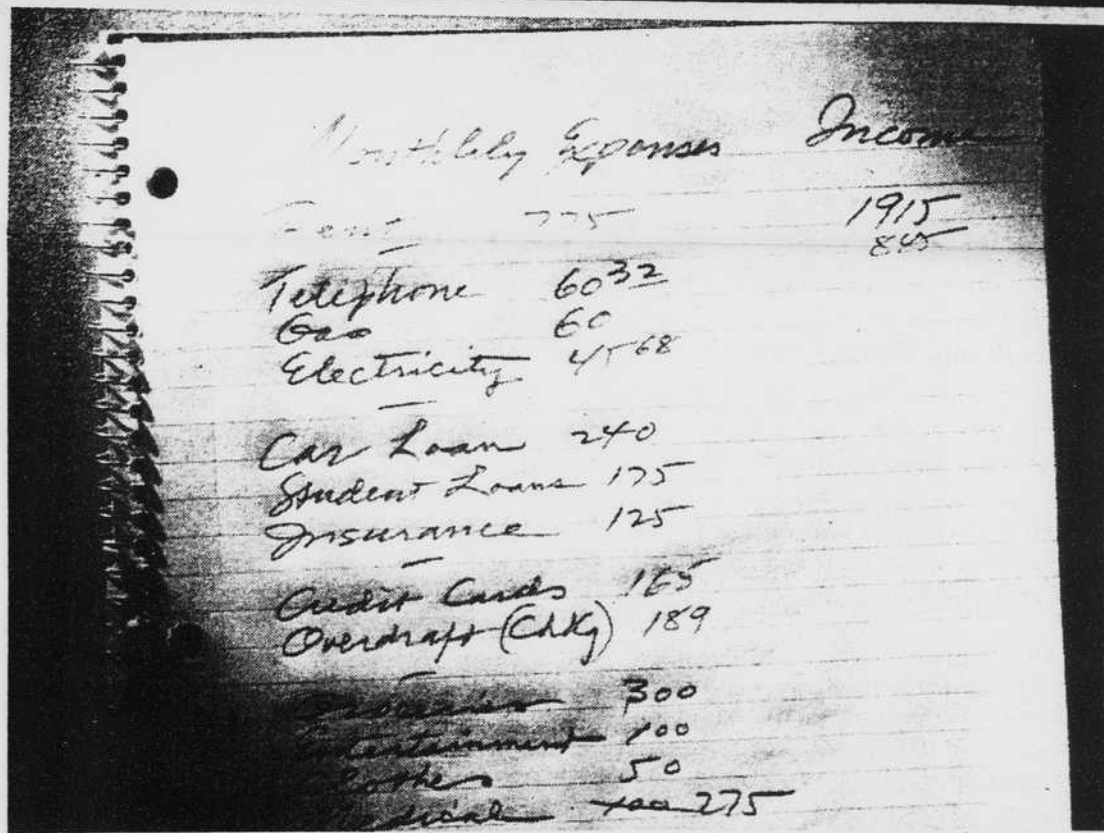 Monthlely Expenses Income
Rent 775 1915
845
Telephone 60 32
Gas 60
Electricity 45 68
Car Loan 240
Student Loans 175
Insurance 125
Credit Cards 165
Overdraft (ChKg) 189
Groceries 300
Entertainment 100
Clothes 50
Medical 275